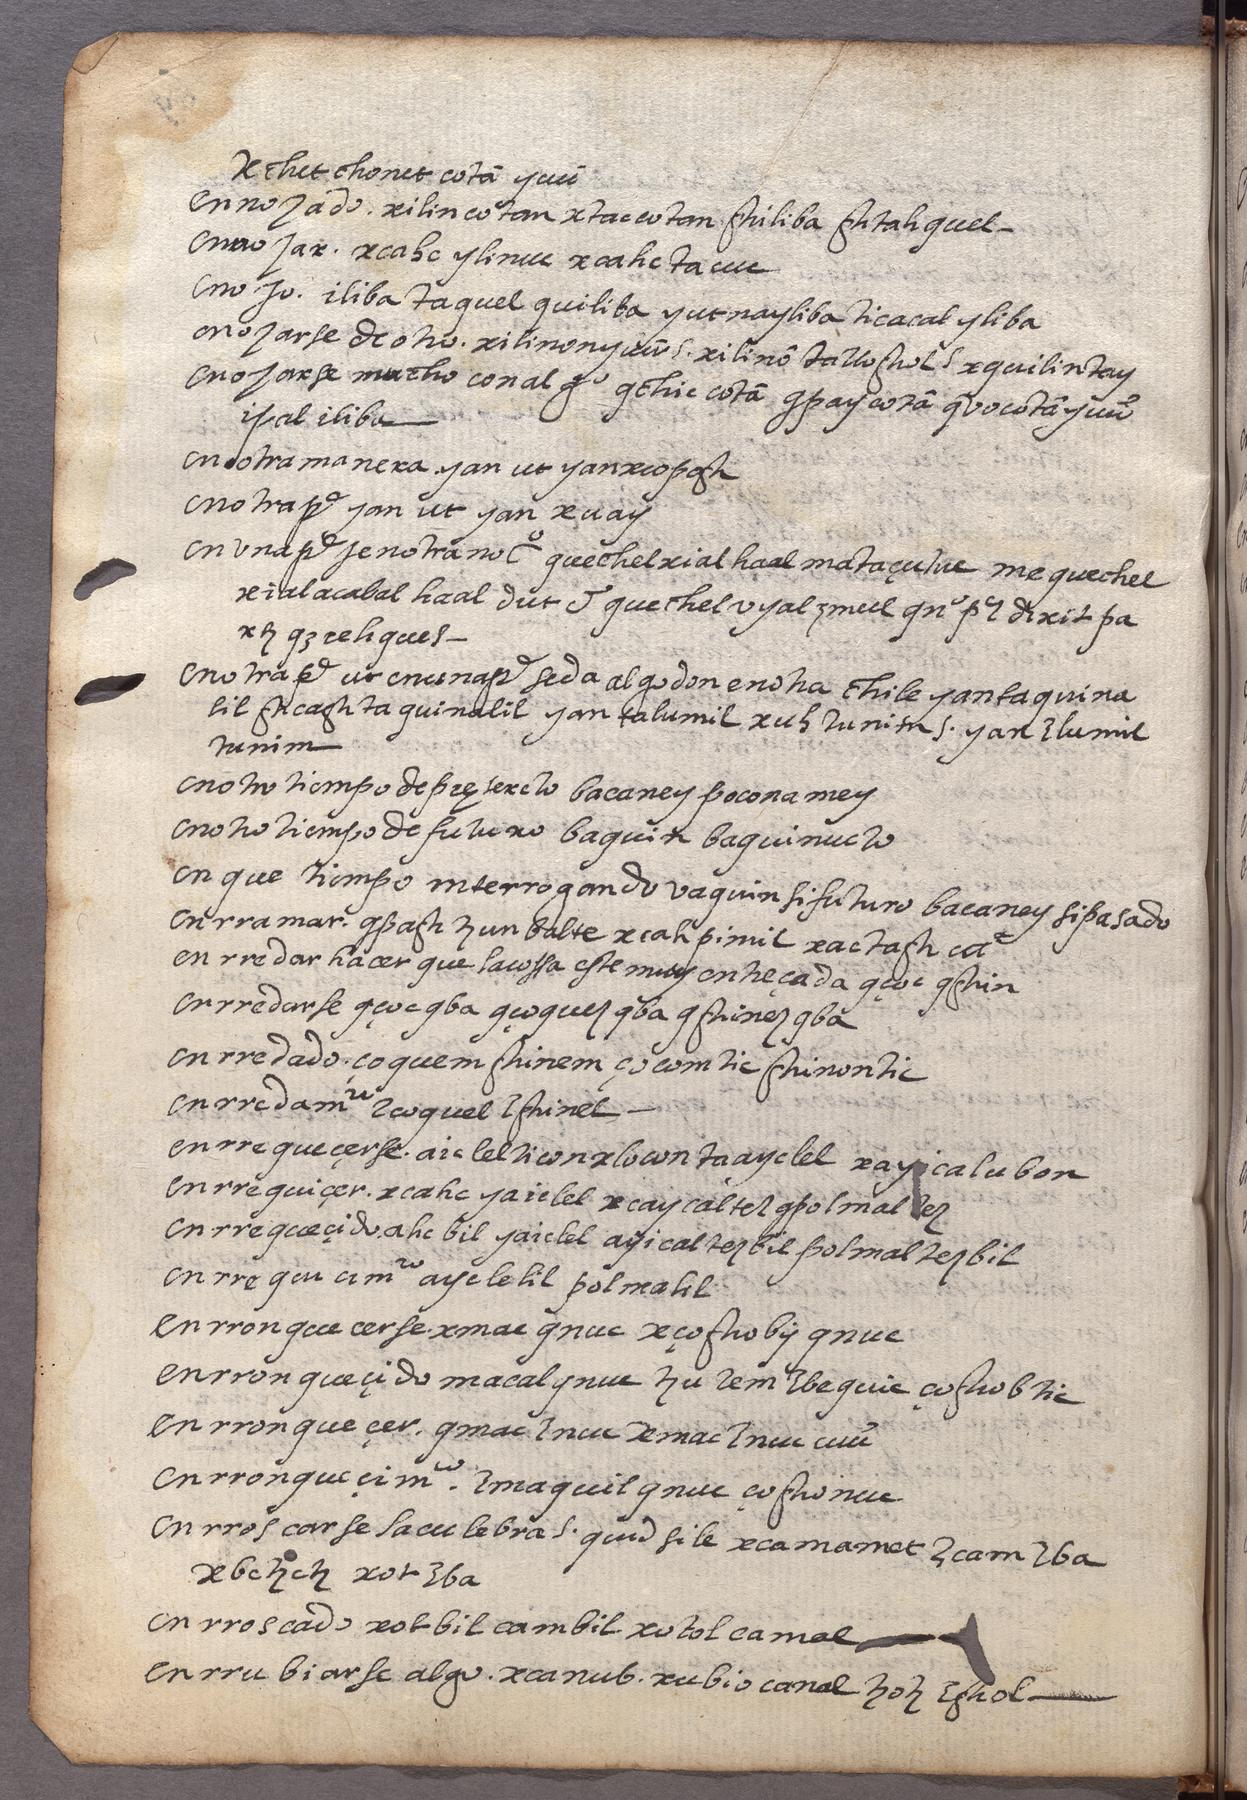 xchet chonet cotā yuū
ennojado. xilincotan xtaccotan ghiliba ghtahquel
ennojar. xcahc ylinuc xcahctacuc
enojo. iliba taquel quiliba yutnayliba ticacal yliba
enojarse de otro. xilinonyuūs. xilinō talloghol s xquilintay
enojarse mucho con algo qchic cotā qpaycotā qvocotāyuū
ipal iliba
en otra manera. yan ut yanxcopogh
en otra pe yan ut yan xuay
en vna pe je notra no cō quechelxial haal mataçutuc mequechel
xialacabal haal dut quechel vyalzmul qno pe dixit pa
xtz qz reliques
en otra pe ut en una pe seda algodon en otra chile yantaquina
lil ghcagh taquinalil yan talumil xuh tunitns. yan zlumil
tunim
en otro tiempo de preterito bacaney poconamey
en otro tiempo de futuro baquin baquinucto
en que tiempo interrogando vaquin si futuro bacaney si pasado
enrramar. qpagh tzunbalte xcahpimil xactagh
enrredar hacer que la cossa este muy entreçada qçoc qghin
enrredarse qçocqba qçoquez qba qghinezqba
enrredado. çoquem ghinem çocomtic ghinontic
enrredamto zcoquel zghinel
enrrequeçerse. aiclelticonxlocontaayclel xayicalubon
enrrequiçer. xcahc yaiclel xcaycaltez qpolmaltez
enrrequeçido. ahc bil yaiclel ayicaltezbil polmaltezbil
enrrequicimto ayclelil polmalil
enrronquecerse. xmac qnuc xçoghobij qnuc
enrronqueçido macalqnuc tzu zem zbequic çoghobtic
enrronqueçer. qmac znuc xmac znuc cuū
enrronqueçimto. zmaquil qnuc çoghonuc
enrroscarse la culebras. quid sile xcamamet zcam zba
xbetzetz xot zba
enrroscado xotbil cambil xotol camal
enrrubiarse algo. xcanub. xubio canal tzotz zghol